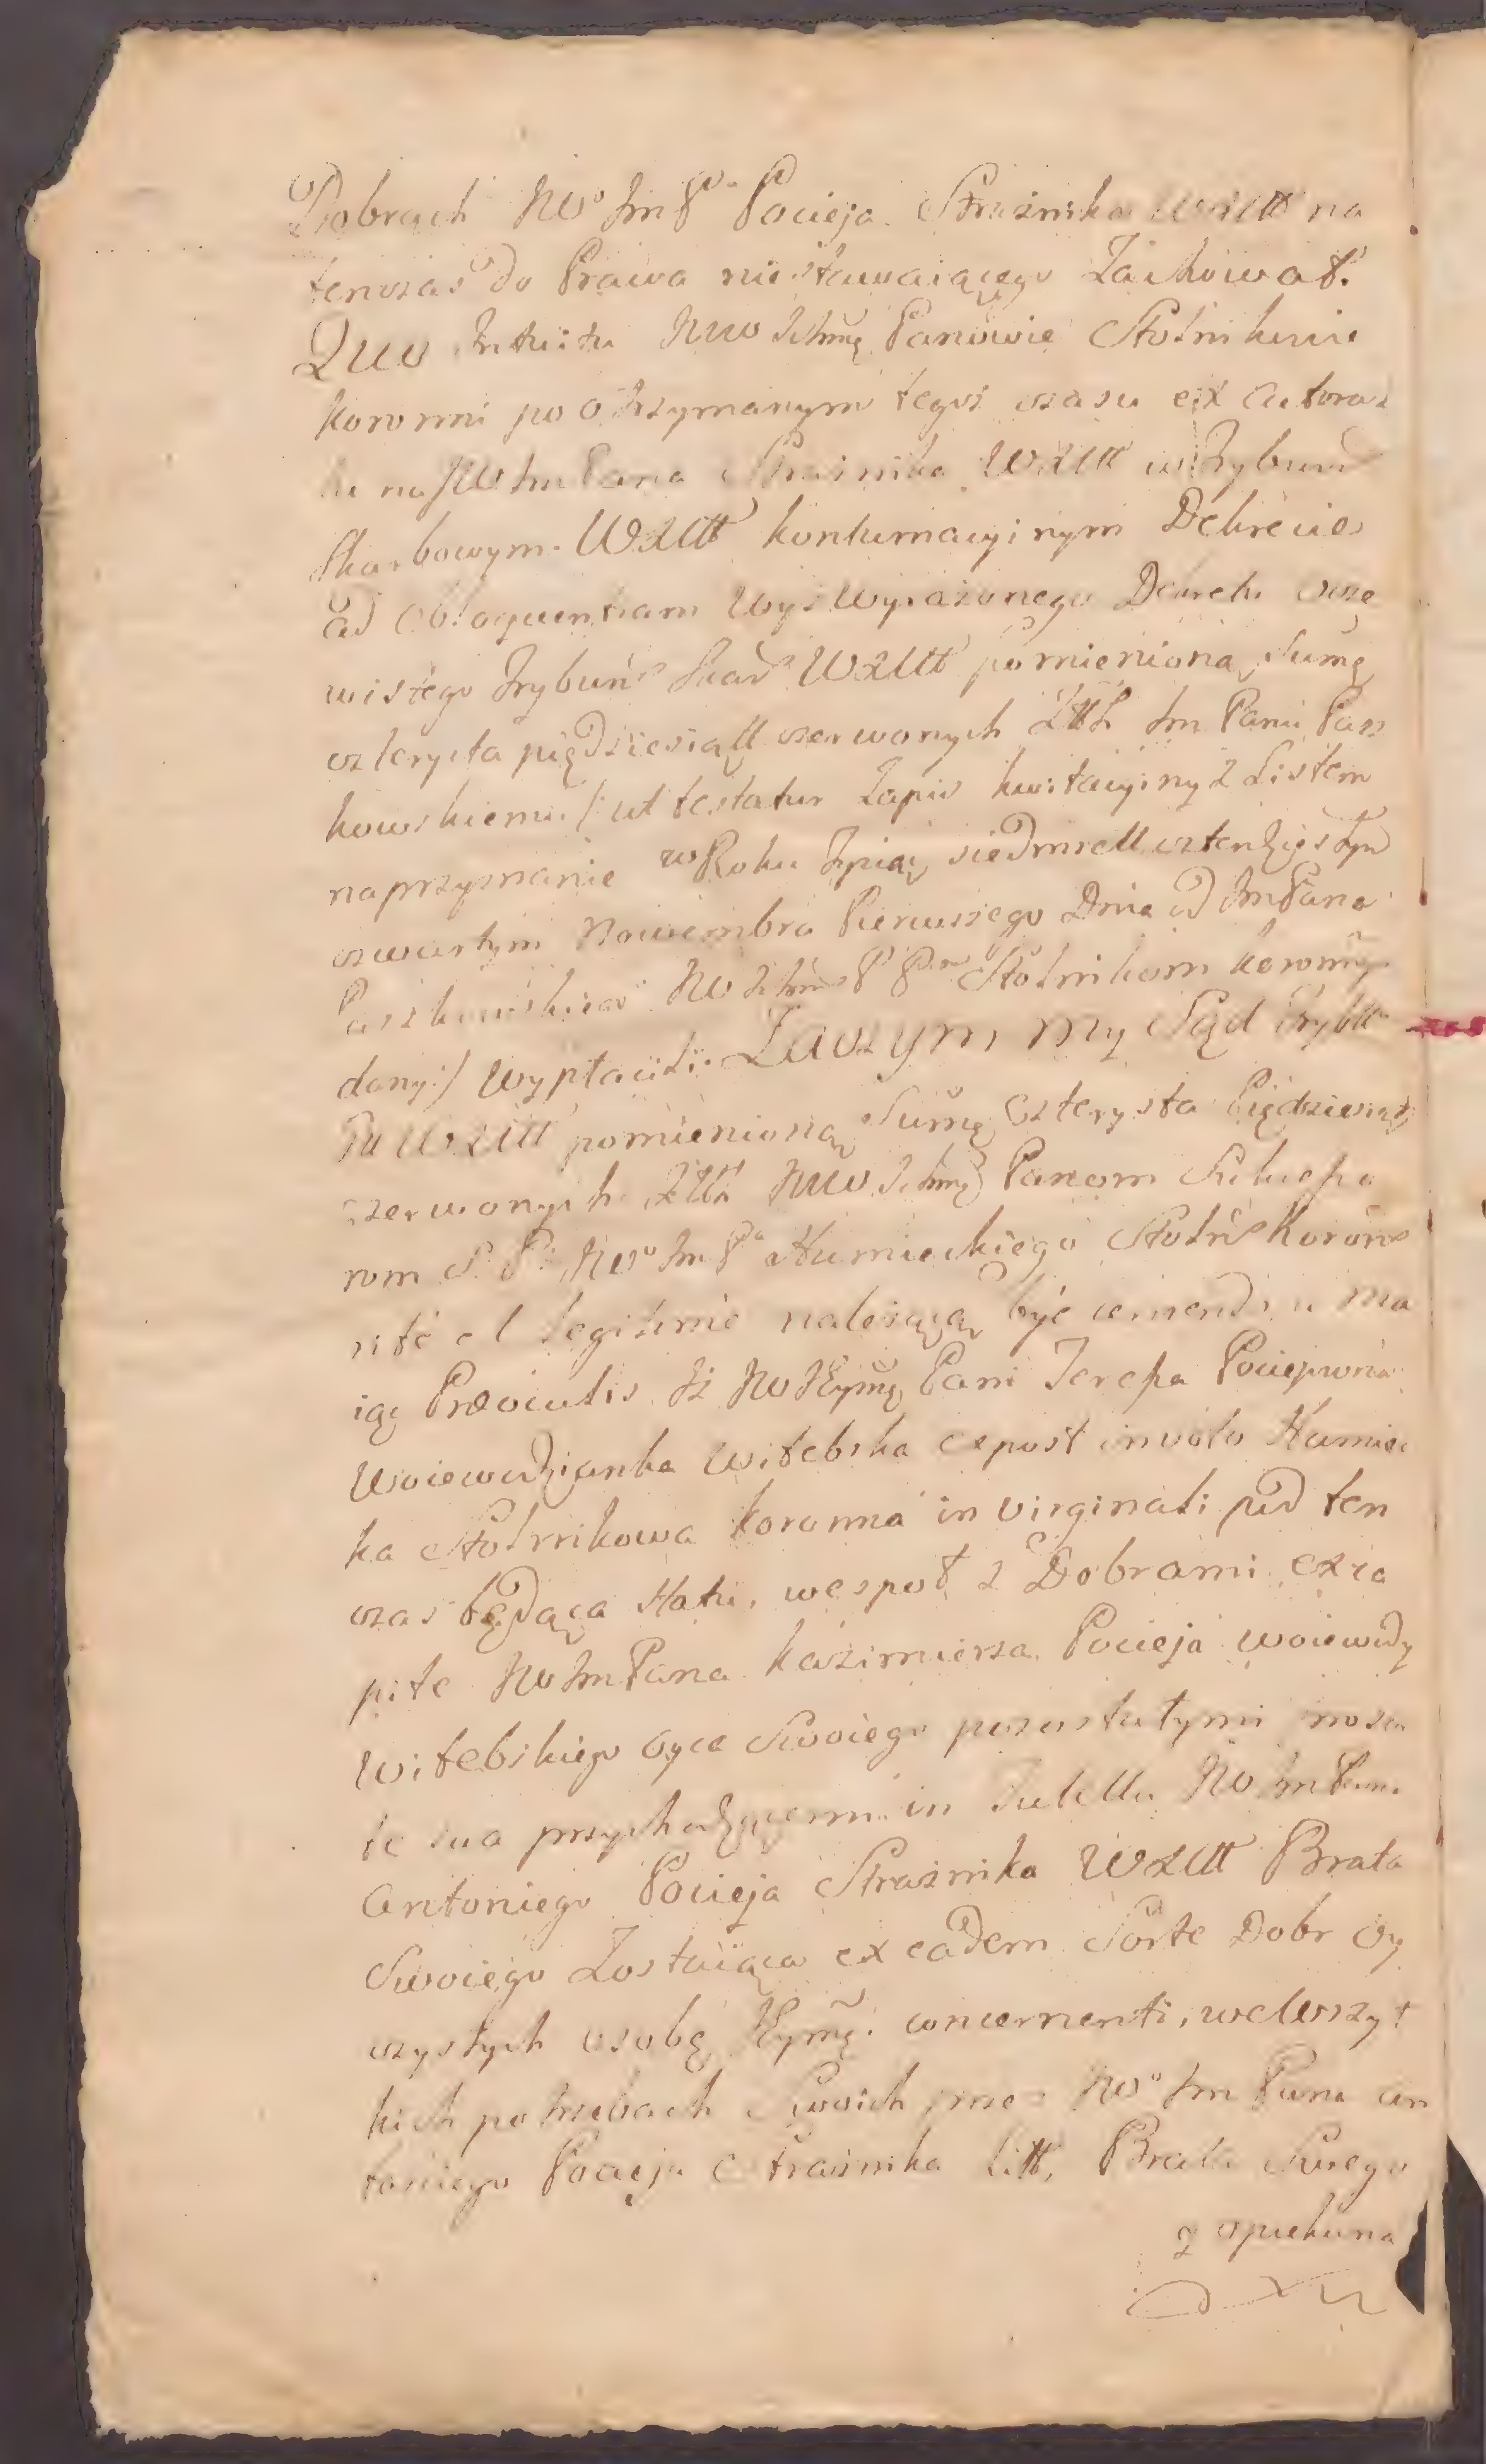 Dobrach JWo Im P. Pocieja Strażnika WXLitt na
tenczas do Prawa niestawaiącego Zachował.
Quo Intuitu JWW Ichmę Panowie Stolnikowie
koronni po otrzymanym tegoż czasu ex actora
tu na JW Im Pana Strażnika WXLitt w Trybun
Skarbowym WXLitt kontumacyinym Dekrecie
ad obloquentiam wyż wyrażonego Dekretu oczę
wistego Trybun Skar WXLitt pomienioną Sumę
czterysta piędziesiątt czerwonych Złłł Im Panu Pasz
kowskiemu /: ut testatur Zapis kwitacyiny z Listem
na przyznanie w Roku Tysiąc siedmsett czterdziestym
czwartym Nowembra Pierwszego Dnia od Im Pana
Paszkowskiego JW Ichm P P. Stolnikom koronnym
dany :/ wypłacili. Zaczym my Sąd Trybtt
Sk WXLitt pomienioną Sumę Czterysta Piędziesiąt
czerwonych Złłł JWW Ichmę Panom Sukcesso
rom S. P. JWo Im Pa Humieckiego Stoln Koron
rite et legitime należącą być uznaie, ma
iąc Prae oculis Iż JW Jeymę Pani Teressa Pociejowna
Woiewodzianka Witebska a post in voto Humiec
ka Stolnikowa koronna in virginali pod ten
czas będąca statu, wespoł z Dobrami ex ca
pite JW Im Pana Kazimierza Pocieja woiewody
Witebskiego oyca Swoiego pozostałymi
te sua przychodzącemi in Tutella JW Im Pana
Antoniego Pocieja Strażnika WXLitt Brata
Swoiego Zostaiąca ex eadem Sorte Dobr Oy
czystych osobę Jeymę. concernenti, we wszyt
kich potrzebach Swoich przez JWo Im Pana An
toniego Pocieja Strażnika Litt, Brata Swego
y opiekuna